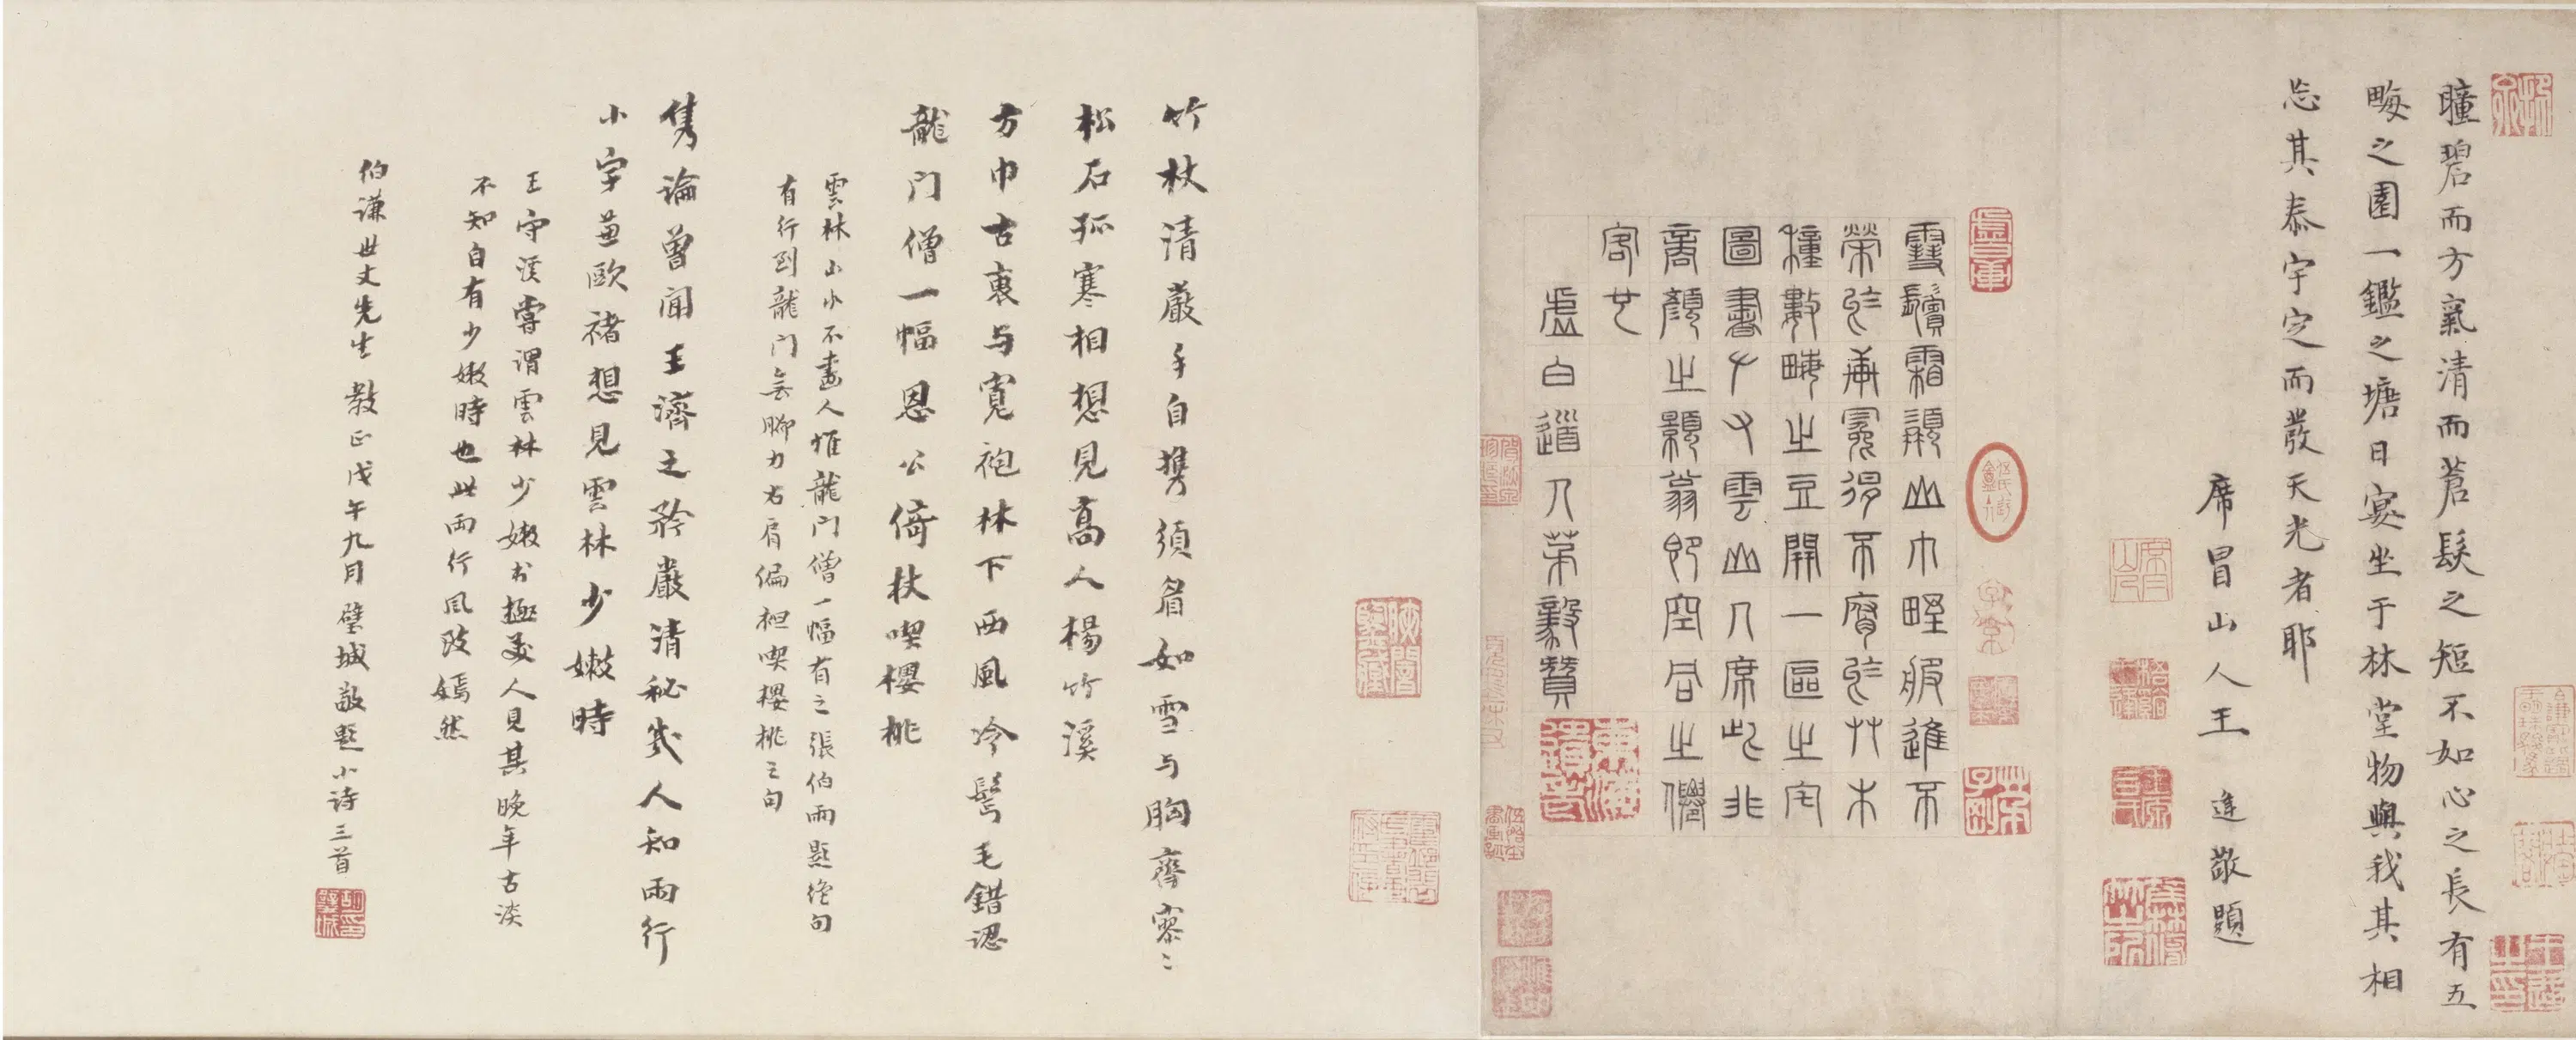 瞳碧而方氣清而蒼髮之短不如心之長有五
畮之園一鑑之塘日宴坐于林堂物與我其相
忘其泰宇定而發天光者耶
席冒山人王逢敬題
雪鬢霜顛山巾野服進不
榮於軒冕獨不腐於艸木
種數畮之豆開一區之宅
圖書千文雲山人席此非
商顏之影翁即空谷之儔
客也
虛白道人茅毅贊
竹杖清嚴手自携須眉如雪与胸齊寥〻
松石孤寒相想見高人楊竹溪
方巾古裏与寬袍林下西風冷鬢毛錯認
龍门僧一幅恩公倚杖喫櫻桃
雲林山水不畫人惟龍门僧一幅有之張伯雨題絕句
有行到龍门無脚力右肩偏袒喫櫻桃之句
雋論曾聞王濟之矜嚴清秘幾人知兩行
小字兼歐褚想見雲林少嫩時
王守溪嘗謂雲林少嫩書極美人見其晚年古淡
不知自有少嫩時也此兩行風致嫣然
伯謙世丈先生 教正戊午九月璧城敬題小诗三首